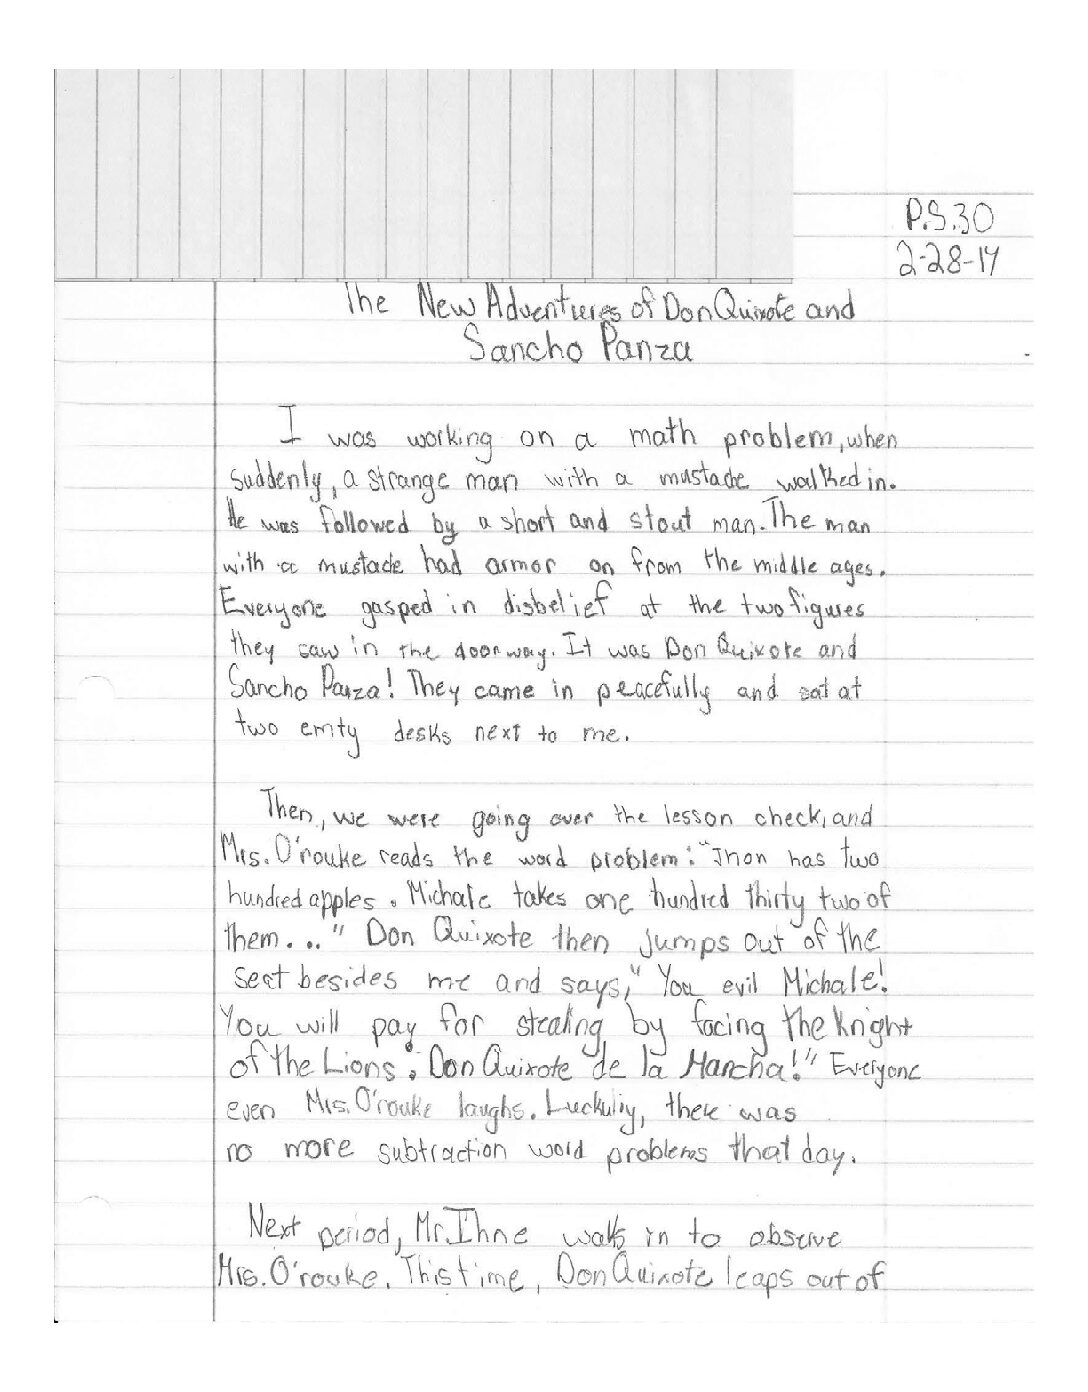 P.S.30
2-28-14
The New Adventures of Don Quixote and
Sancho Panza
I was working on a math problem, when
suddenly, a strange man with a mustade walked in.
He was followed by a short and stout man. The man
with a mustade had armor on from the middle ages.
Everyone gasped in disbelief at the two figures
they saw in the doorway. It was Don Quixote and
Sancho Panza! They came in peacefully and sat at
two emty desks next to me.
Then, we were going over the lesson check, and
Mrs. O'rouke reads the word problem: "Jhon has two
hundred apples. Michale takes one hundred thirty two of
them..." Don Quixote then jumps out of the
seat besides me and says, "You evil Michale!
You will pay for stealing by facing the Knight
of the Lions: Don Quixote de la Mancha!" Everyone
even Mrs. O'rouke laughs. Luckuliy, there was
no more subtraction word problems that day.
Next period, Mr. Ihne walks in to observe
Mrs. O'rouke. This time, Don Quixote leaps out of